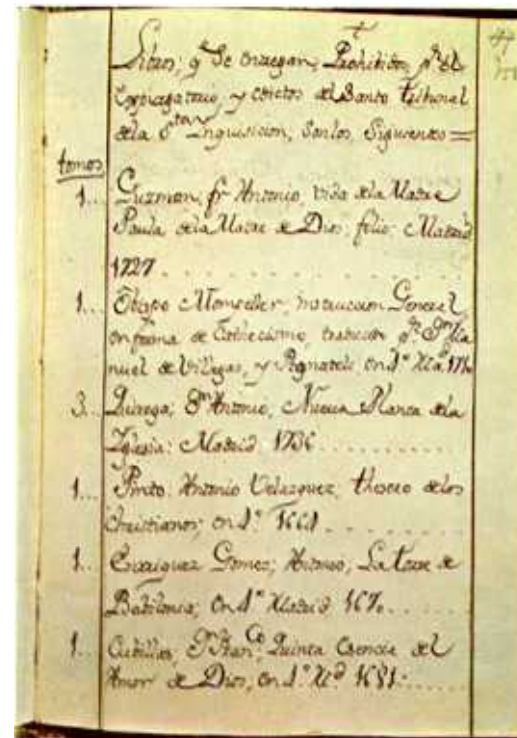 Libros, q.e Se entregan, Prohibidos, p.r el
Expurgatorio, y edictos del Santo tribunal
dela S.ta Inquisicion, Son los, Siguientes =
tomos
1... Guzman, fr Antonio, vida dela Madre
Paula dela Madre de Dios, folio: Madrid
1727
1... Obispo Mompeller, instruccion General,
en forma de Cathecismo, traducido p.r D.n Ma
nuel de Villegas, y Pignateli, en 4.º
3... Quiroga, D.n Antonio, Nueva Planta dela
Iglesia: Madrid 1736
1... Pinto, Antonio Velazquez, thesoro delos
Christianos, en 4.º 1664
1... Enrriquez Gomez, Antonio, La torre de
Babilonia, en 4.º Madrid 1670
1... Cubillas, D.n Fran.co, Quinta Esencia del
Amor de Dios, en 4.º M.d 1681